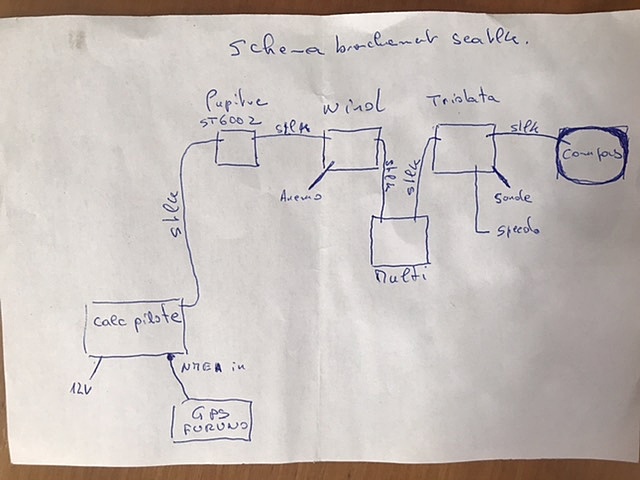 Schema branchement seatlk.
Pupitre
ST6002
Wind
Tridata
stlk
stlk
Compas
Anemo
stlk
stlk
sonde
speedo
stlk
Multi
calc pilote
12V
NMEA in
GPS
FURUNO